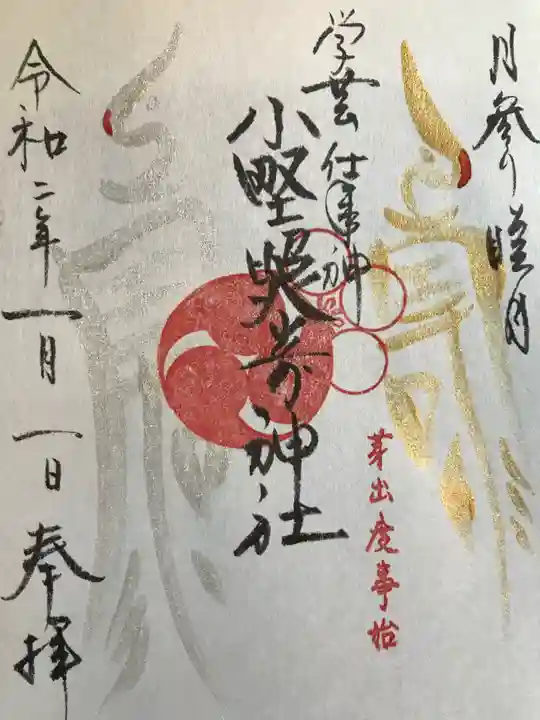 月参り 睦月
学芸 仕事神
小野照崎神社
芽出度事始
令和二年 一月 一日 奉拝